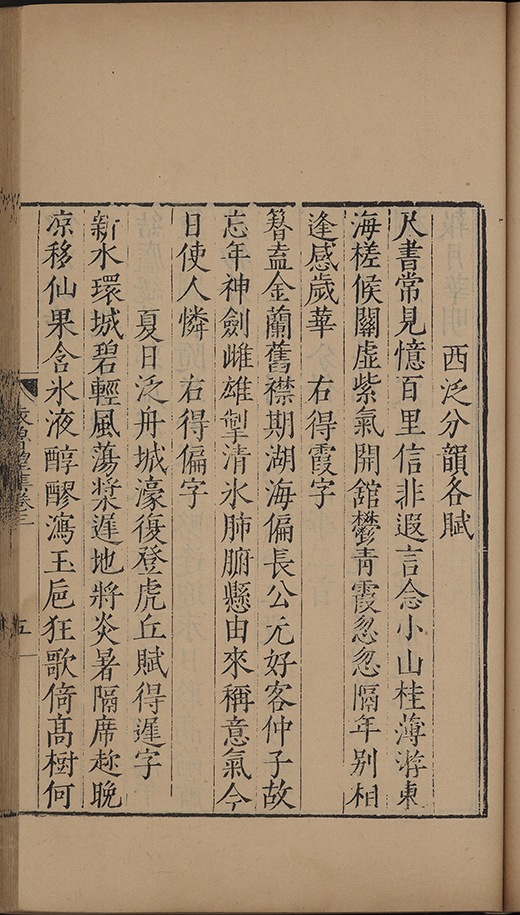 西泛分韻各賦
尺書常見憶百里信非遐言念小山桂薄游東
海槎候關虛紫氣開舘鬱青霞忽忽隔年別相
逢感歲華　右得霞字
簪盍金蘭舊襟期湖海偏長公元好客仲子故
忘年神劍雌雄掣清氷肺腑懸由來稱意氣今
日使人憐　右得偏字
夏日泛舟城濠復登虎丘賦得遲字
新水環城碧輕風蕩槳遲地將炎暑隔席趂晚
凉移仙果含氷液醇醪瀉玉巵狂歌倚高樹何
集卷三
五